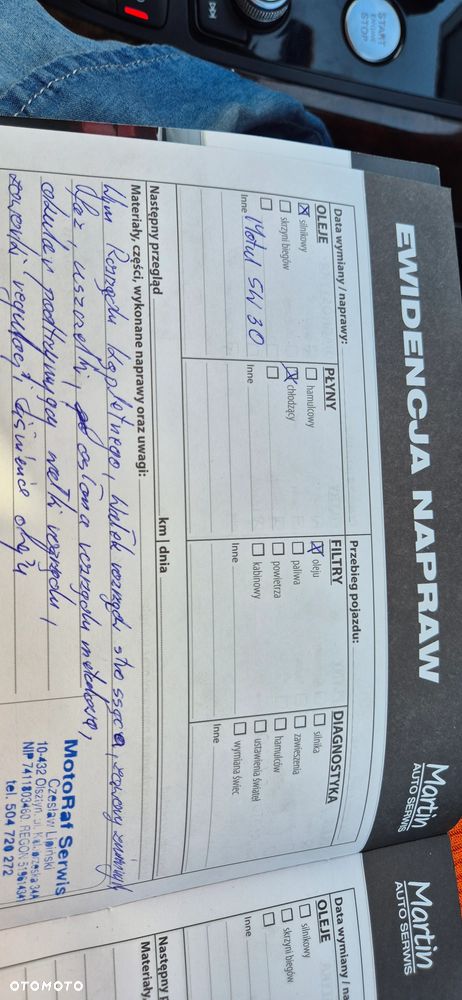 START
ENGINE
STOP
EWIDENCJA NAPRAW
Martin
AUTO SERWIS
Data wymiany / naprawy:
Przebieg pojazdu:
OLEJE
silnikowy
skrzyni biegów
Inne
Motul 5W30
PŁYNY
hamulcowy
chłodzący
Inne
FILTRY
oleju
paliwa
powietrza
kabinowy
Inne
DIAGNOSTYKA
silnika
zawieszenia
hamulców
ustawienia świateł
wymiana świec
Inne
Następny przegląd
km | dnia
Materiały, części, wykonane naprawy oraz uwagi:
Wym Rozrządu kompletnego, wałek rozrządu, zawory
uszczelki, osłona rozrządu metalowa,
wałki rozrządu,
regulacji ciśnienie oleju
MotoRaf Serwis
Czesław Lipiński
10-432 Olsztyn, ul.
NIP 7411803460, REGON
tel. 504 720 272
Martin
AUTO SERWIS
Data wymiany / na
OLEJE
silnikowy
skrzyni biegów
Inne
Następny p
Materiały,
OTOMOTO